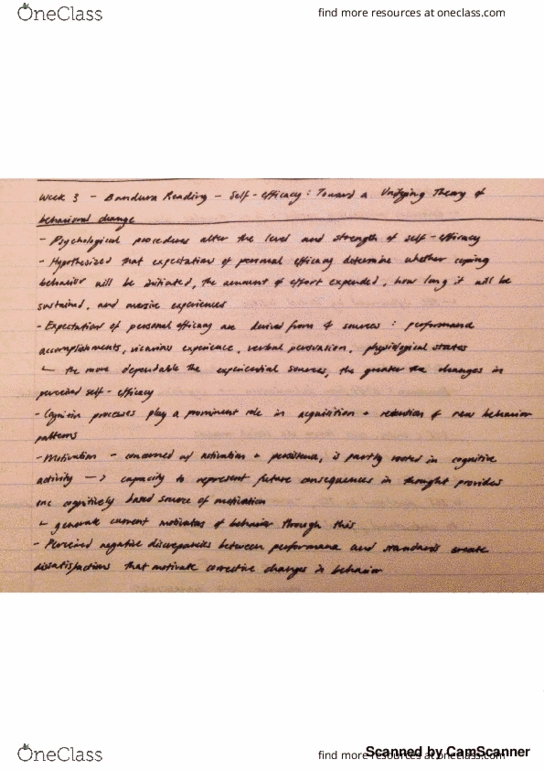 OneClass
find more resources at oneclass.com
Week 3 - Bandura Reading - Self-efficacy: Toward a Unifying Theory of
behavioral change
- Psychological procedures alter the level and strength of self-efficacy
- Hypothesized that expectations of personal efficacy determine whether coping
behavior will be initiated, the amount of effort expended, how long it will be
sustained, and aversive experiences
- Expectations of personal efficacy are derived from 4 sources: performance
accomplishments, vicarious experience, verbal persuasion, physiological states
↳ the more dependable the experiential sources, the greater the changes in
perceived self-efficacy
- Cognitive processes play a prominent role in acquisition + retention of new behavior
patterns
- Motivation - concerned w/ activation + persistence, is partly rooted in cognitive
activity —> capacity to represent future consequences in thought provides
one cognitively based source of motivation
↳ generate current motivators of behavior through this
- Perceived negative discrepancies between performance and standards create
dissatisfactions that motivate corrective changes in behavior
OneClass
find more resources at oneclass.com
Scanned by CamScanner